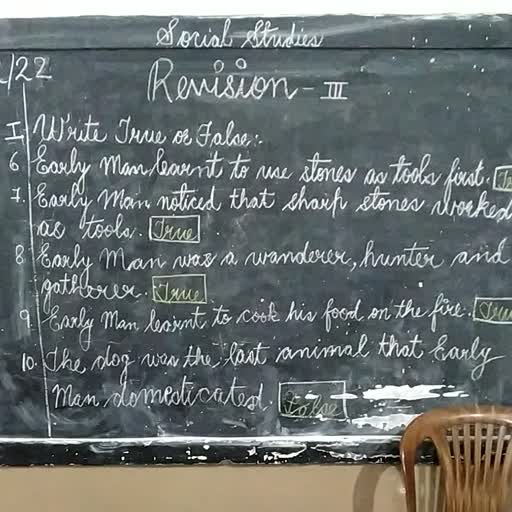 Social Studies
/22
Revision - III
I Write True or False:-
6 Early Man learnt to use stones as tools first.
7. Early Man noticed that sharp stones worked
as tools. True
8. Early Man was a wanderer, hunter and
gatherer. True
9. Early Man learnt to cook his food on the fire. True
10. The dog was the last animal that Early
Man domesticated. False